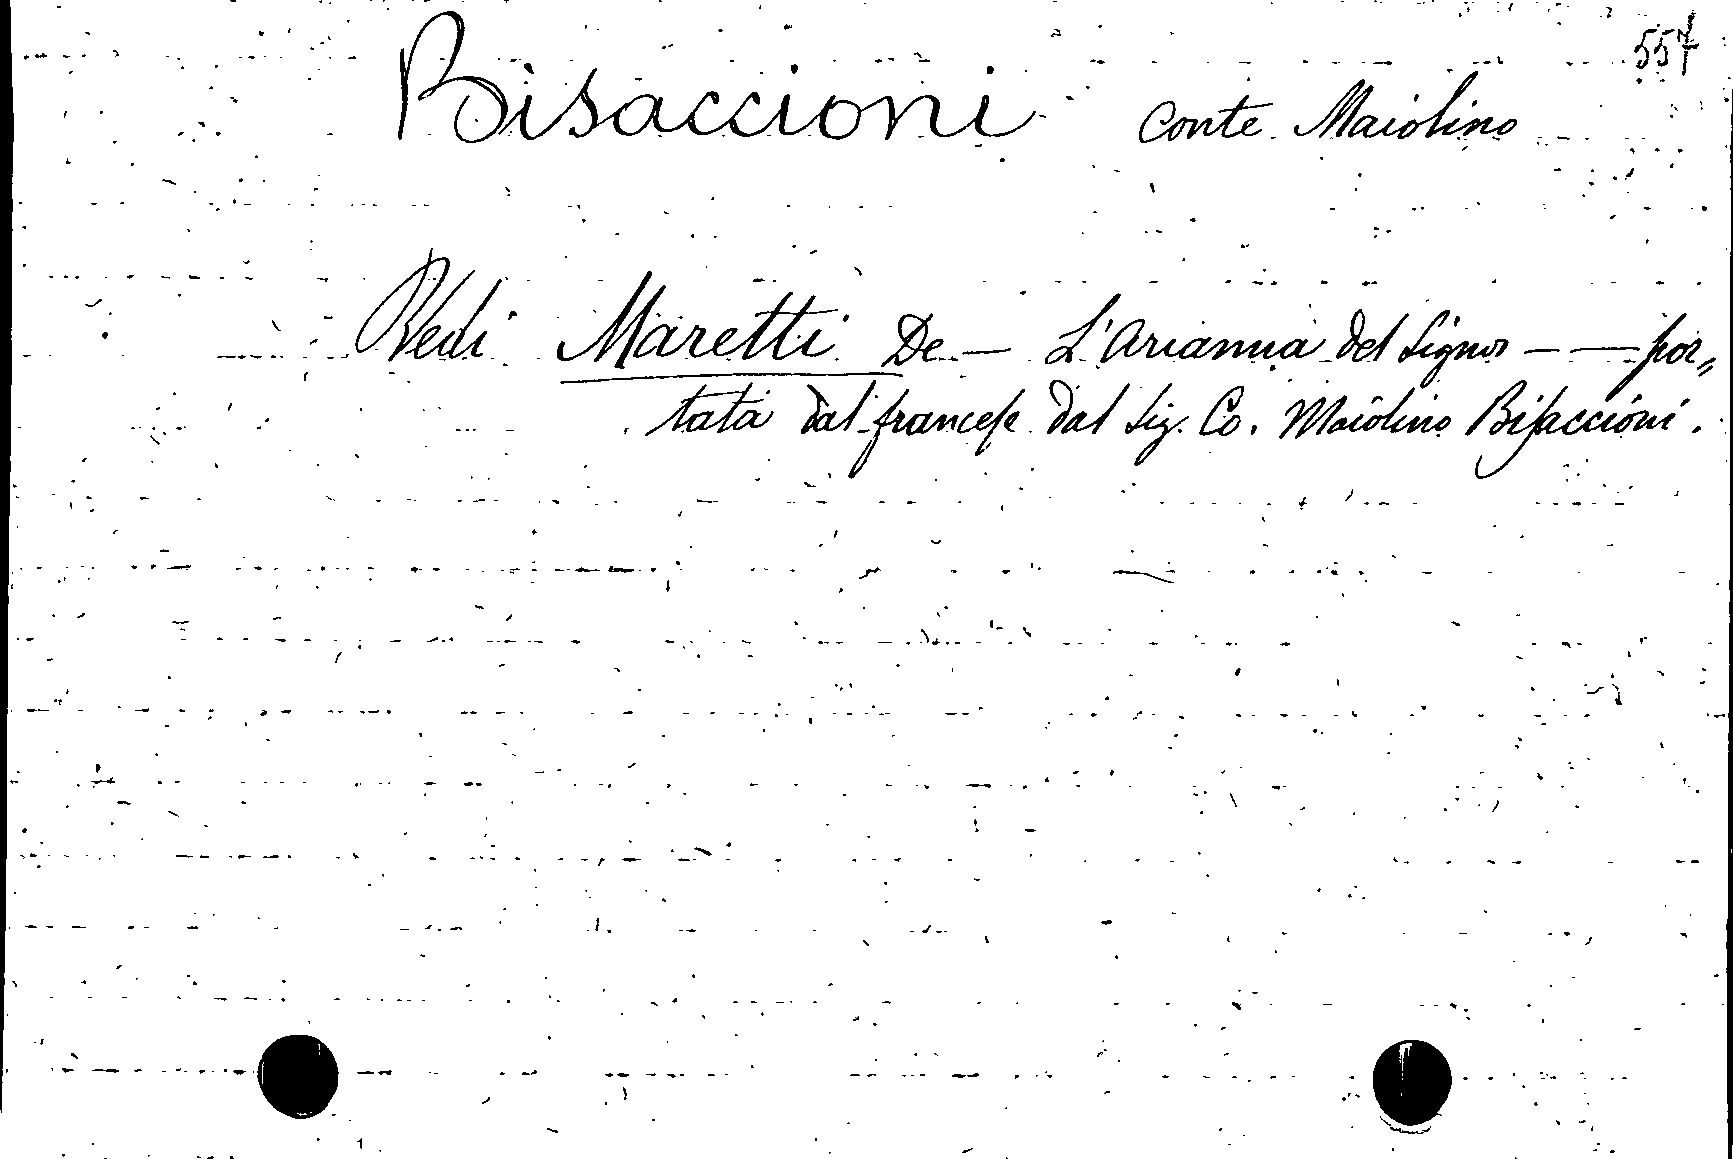 557
Bisaccioni conte Maiolino
Vedi Maretti De — L'Arianna del Signor — — por„
tata dal francese dal Sig. Co. Maiolino Bisaccioni.